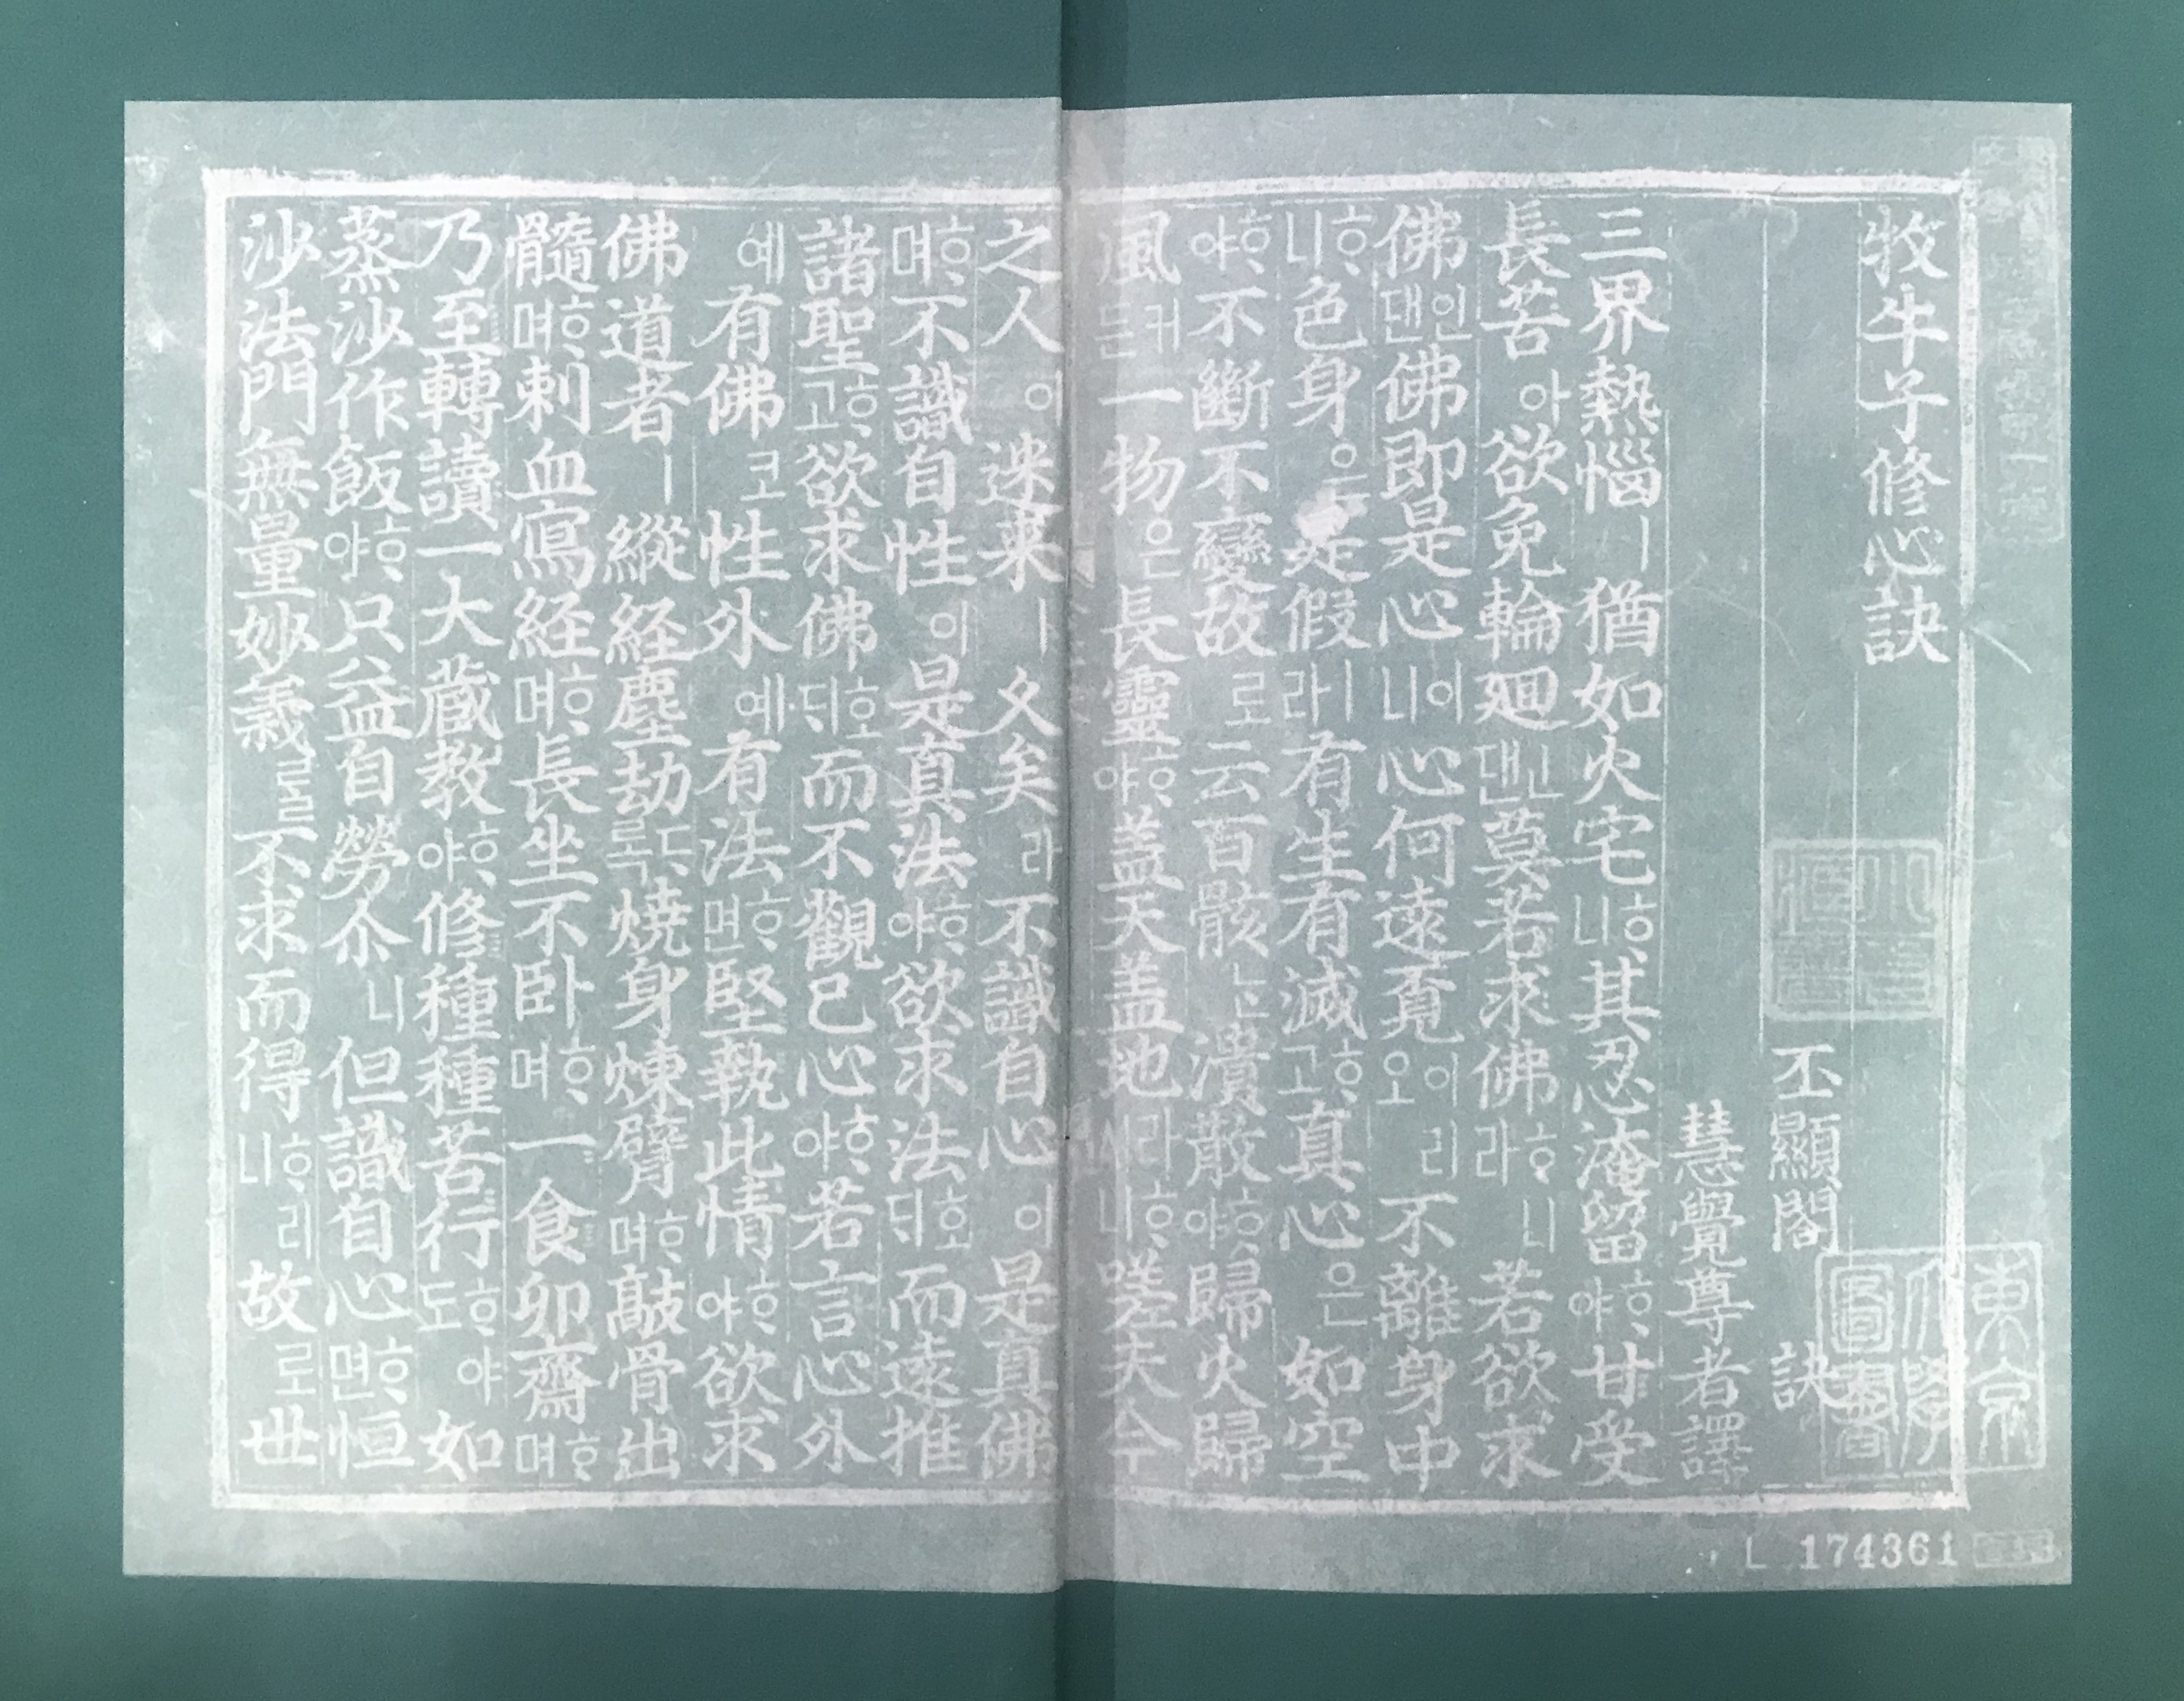 牧牛子修心訣
丕顯閤 訣
慧覺尊者譯
三界熱惱ㅣ猶如火宅ᄒᆞ니其忍淹留ᄒᆞ야甘受
長苦아欲免輪廻ᄂᆞᆫ댄莫若求佛ᄒᆞ라니若欲求
佛인댄佛即是心이니心何遠覓이오리不離身中
ᄒᆞ니色身ᄋᆞᆫ是假ㅣ라有生有滅ᄒᆞ고真心은如空
ᄒᆞ야不斷不變故로云百骸ᄂᆞᆫ潰散ᄒᆞ야歸火歸
風커든一物은長靈ᄒᆞ야盖天盖地라ᄒᆞ니嗟夫今
之人이迷来ㅣ久矣라不識自心이是真佛
ᄒᆞ며不識自性이是真法ᄒᆞ야欲求法호ᄃᆡ而遠推
諸聖ᄒᆞ고欲求佛호ᄃᆡ而不觀己心ᄒᆞ야若言心外
예有佛코性外예有法ᄒᆞ면堅執此情ᄒᆞ야欲求
佛道者ㅣ縱經塵劫ᄃᆞ록燒身煉臂ᄒᆞ며敲骨出
髓ᄒᆞ며刺血寫経ᄒᆞ며長坐不卧ᄒᆞ며一食卯齋ᄒᆞ며
乃至轉讀一大蔵教ᄒᆞ야修種種苦行ᄒᆞ야도如
蒸沙作飯ᄒᆞ야只益自勞尒니但識自心ᄒᆞ면恒
沙法門無量妙義ᄅᆞᆯ不求而得ᄒᆞ리니故로世
東京
大學
圖書
L 174361